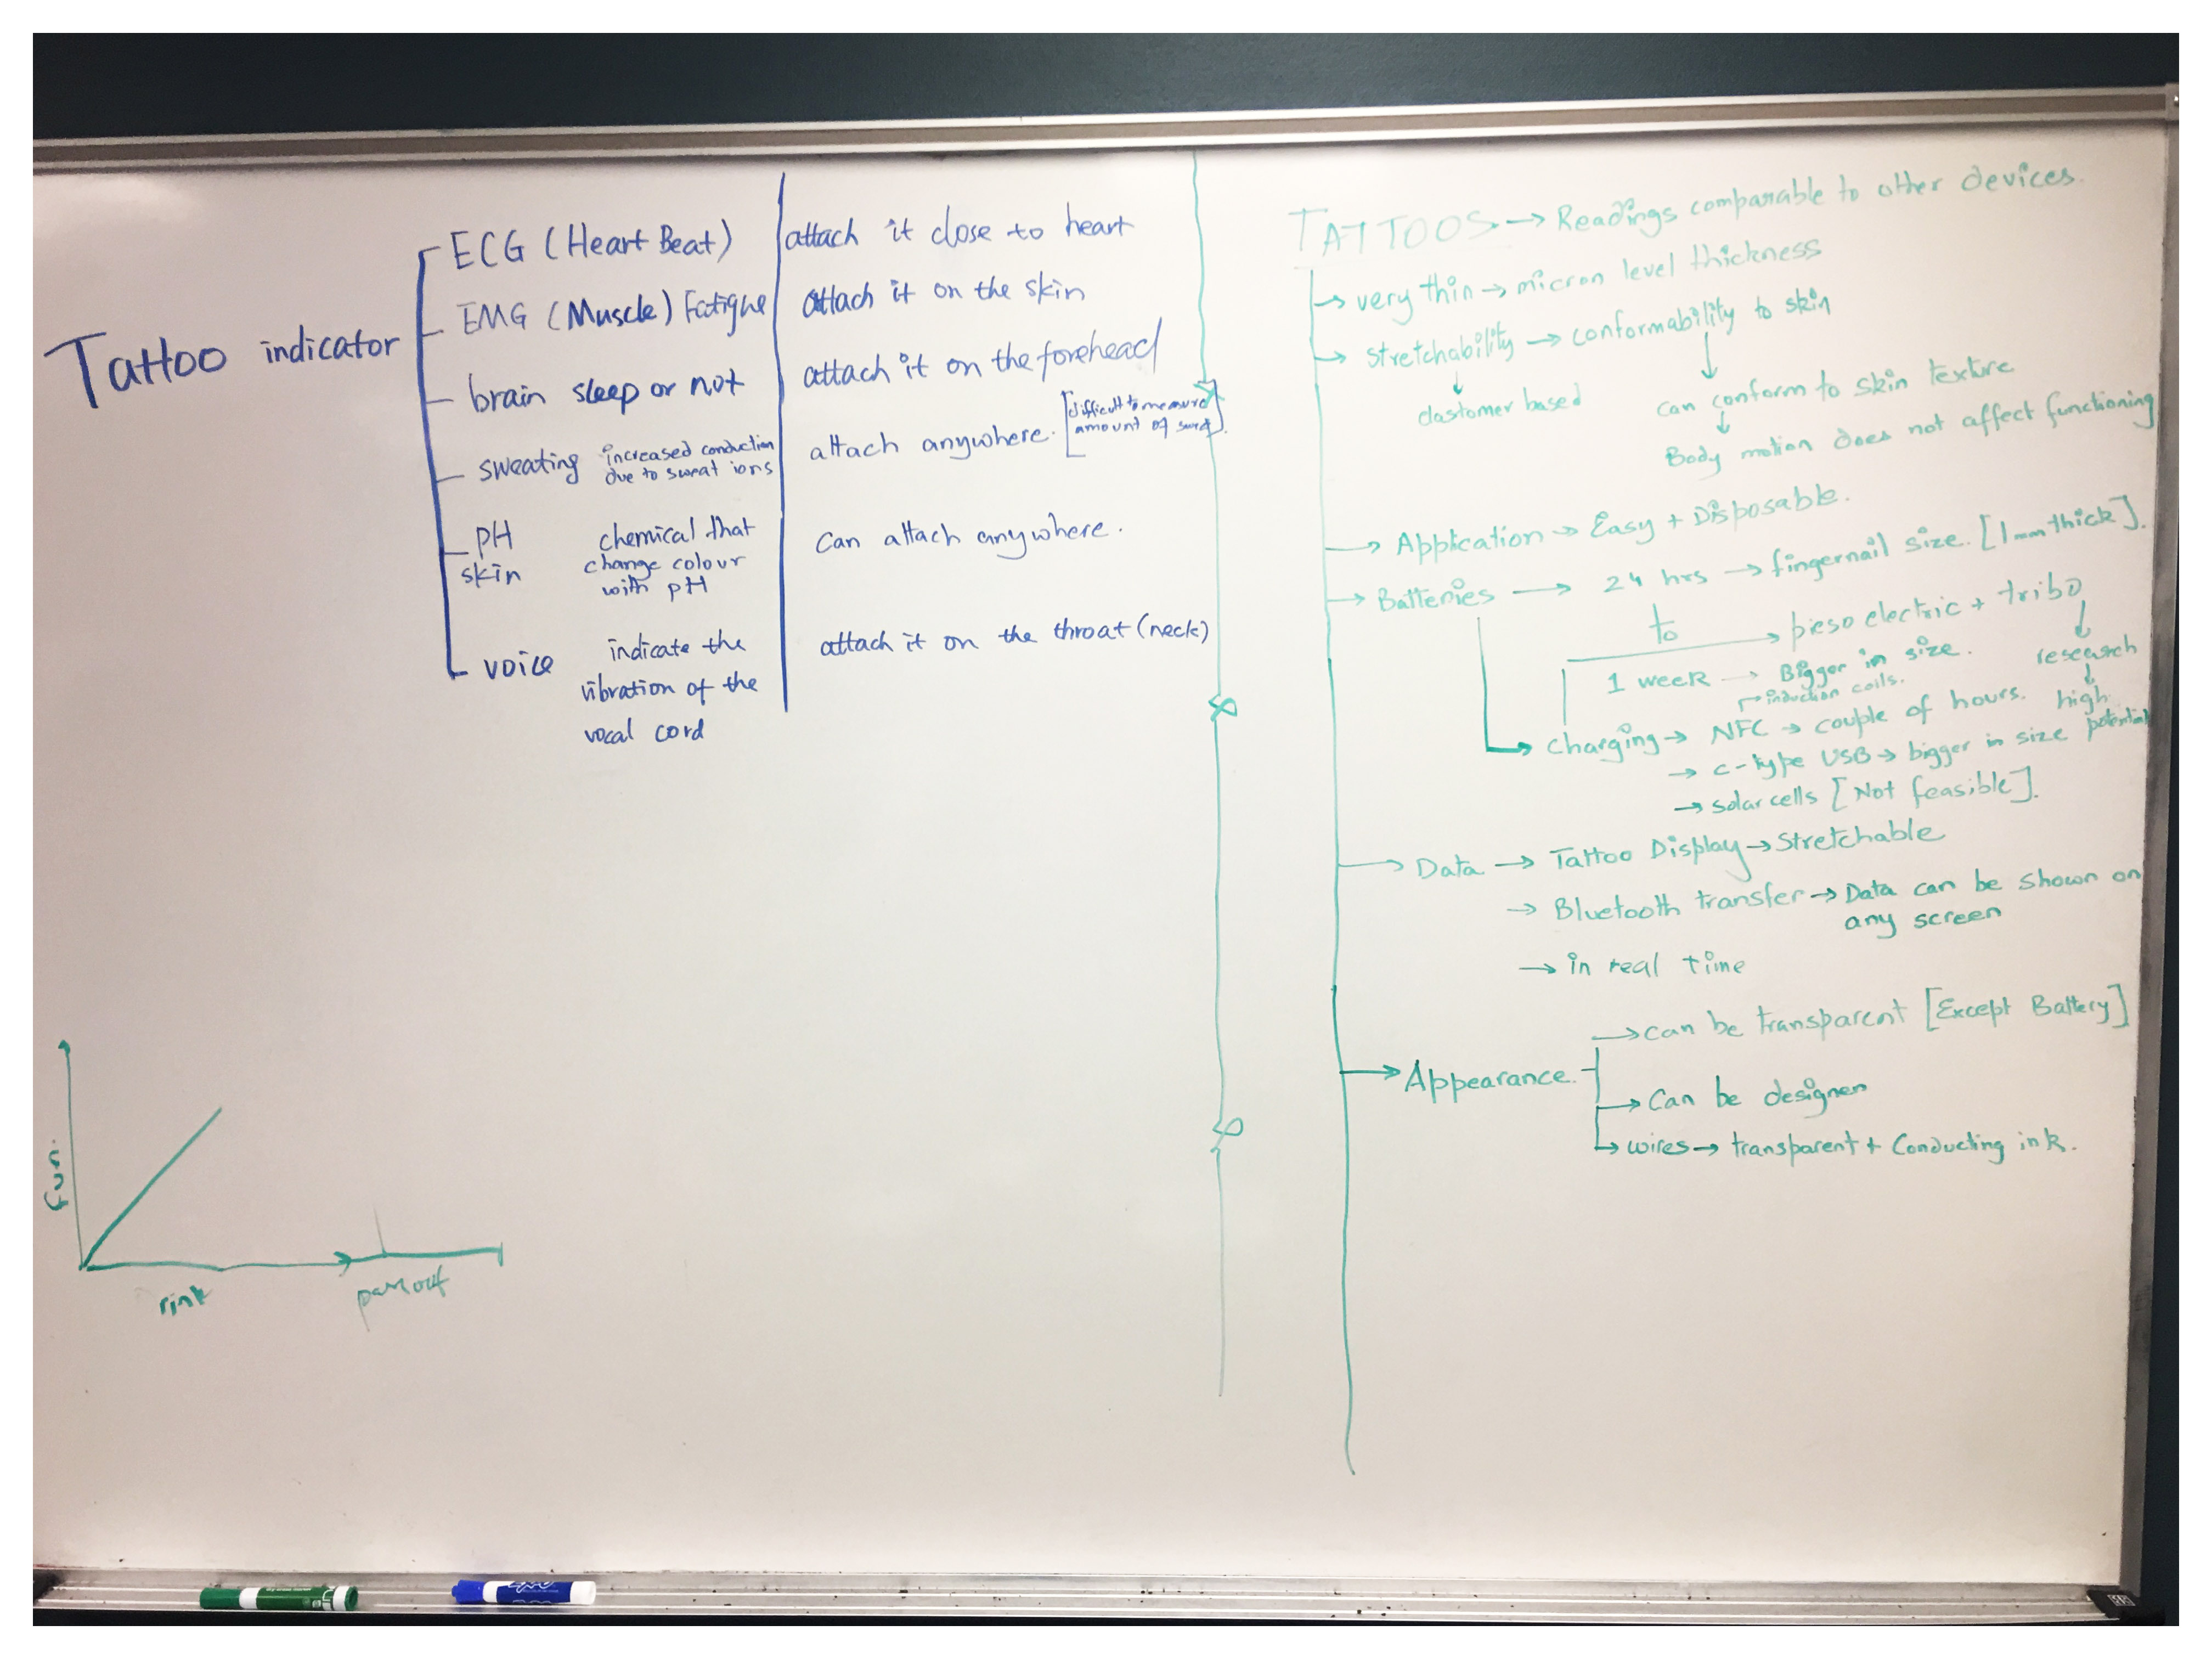 Tattoo indicator
ECG (Heart Beat) attach it close to heart
EMG (Muscle) Fatigue attach it on the skin
brain sleep or not attach it on the forehead
sweating increased conduction
due to sweat ions
attach anywhere. [difficult to measure
amount of sweat].
pH
skin
chemical that
change colour
with pH
can attach anywhere.
voice indicate the
vibration of the
vocal cord
attach it on the throat (neck)
fun.
TATTOOS → Readings comparable to other devices.
→ very thin → micron level thickness
→ stretchability → conformability to skin
↓ elastomer based
↓ can conform to skin texture
↓
Body motion does not affect functioning
→ Application → Easy + Disposable.
→ Batteries → 24 hrs → fingernail size. [1mm thick].
to
1 week → Bigger in size.
→ pieso electric + tribo
↓
research
↓
high
potential
→ charging → NFC → couple of hours.
→ induction coils.
→ c-type USB → bigger in size
→ solar cells [Not feasible].
→ Data → Tattoo Display → Stretchable
→ Bluetooth transfer → Data can be shown on
any screen
→ in real time
→ Appearance.
→ can be transparent [Except Battery]
→ Can be designer
→ wires → transparent + Conducting ink.